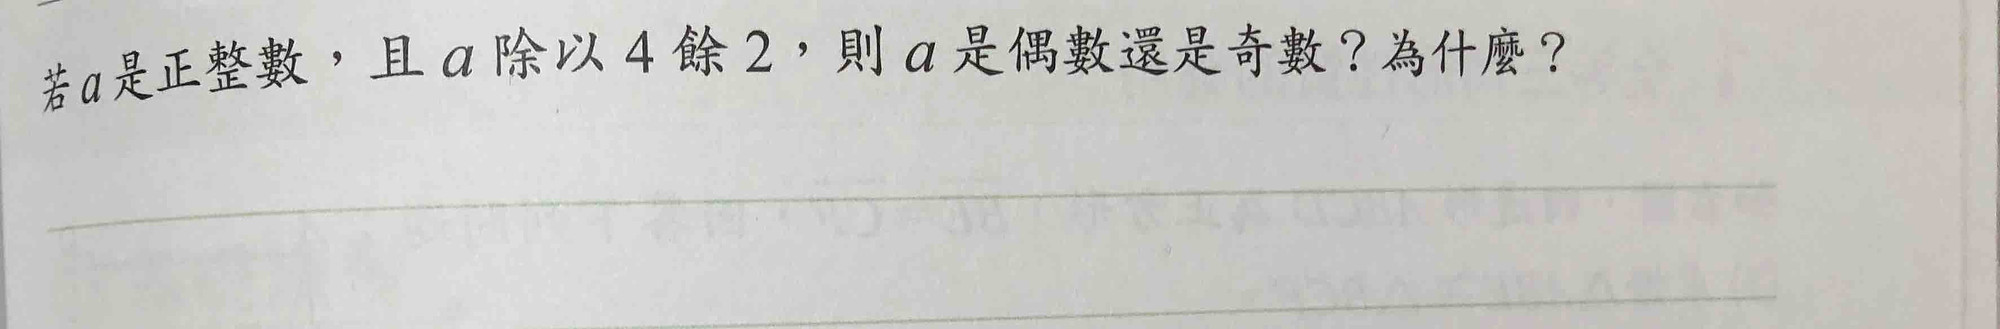 若a是正整數，且a除以4餘2，則a是偶數還是奇數？為什麼？